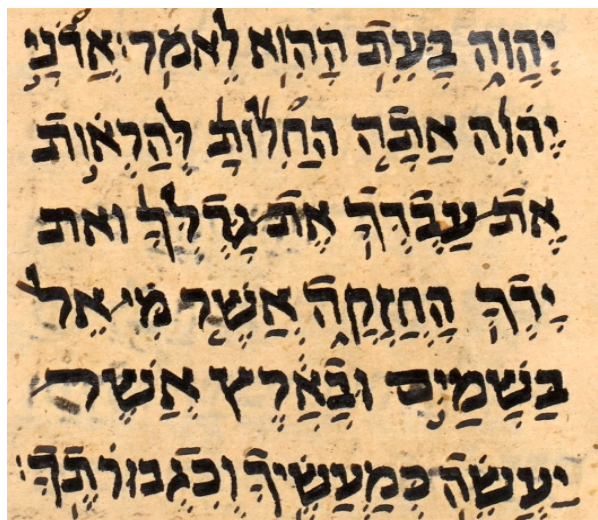 יְהוָה בָּעֵת הַהִוא לֵאמֹר׃ אֲדֹנָי
יֱהֹוִה אַתָּה הַחִלּוֹתָ לְהַרְאוֹת
אֶת עַבְדְּךָ אֶת גָּדְלְךָ וְאֶת
יָדְךָ הַחֲזָקָה אֲשֶׁר מִי אֵל
בַּשָּׁמַיִם וּבָאָרֶץ אֲשֶׁר
יַעֲשֶׂה כְמַעֲשֶׂיךָ וְכִגְבוּרֹתֶךָ׃